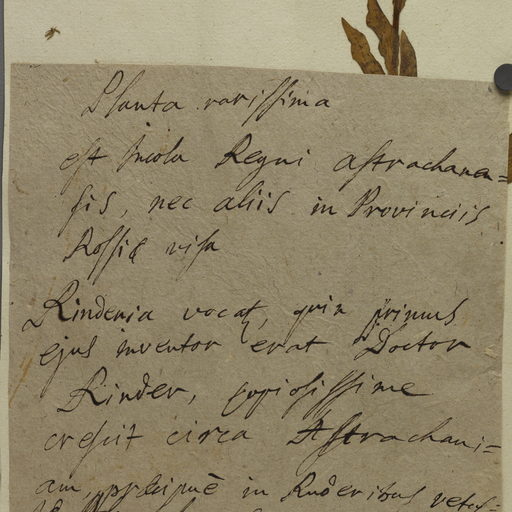 Planta rarissima
est Incola Regni Astrachanen=
sis, nec aliis in Provinciis
Rossiæ visa
Rinderia vocat, quia primus
ejus inventor erat Doctor
Rinder, copiosissime
crescit circa Astrachani=
am, præcipuè in Ruderibus vetus=